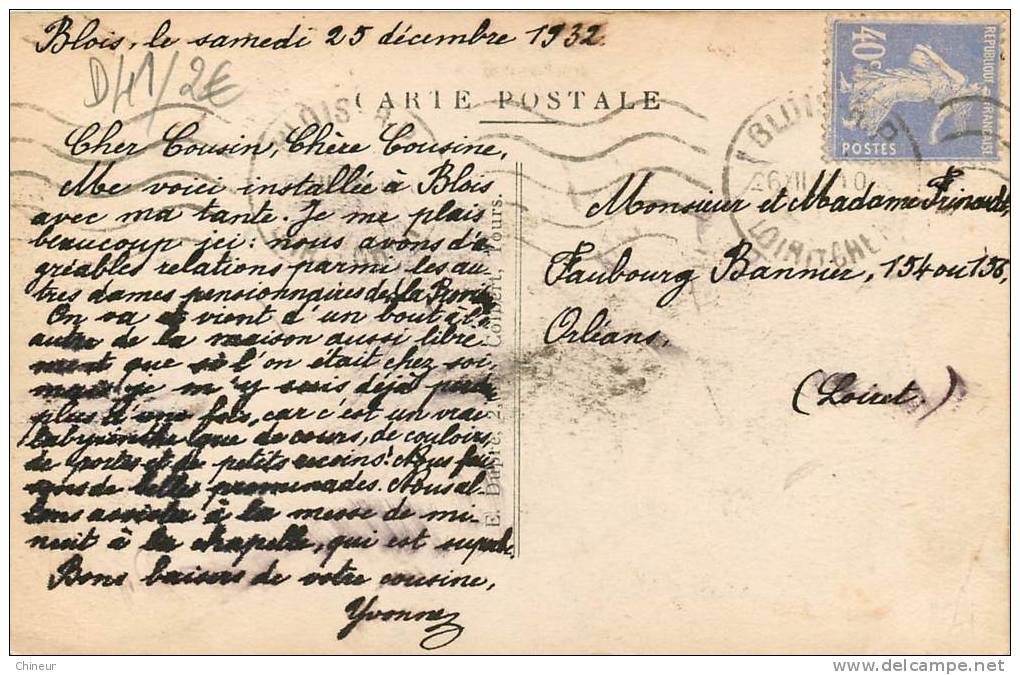 Blois, le samedi 25 décembre 1932.
D41/2€
CARTE POSTALE
Cher Cousin, Chère Cousine,
Me voici installée à Blois
avec ma tante. Je me plais
beaucoup ici: nous avons d'a-
gréables relations parmi les au-
tres dames pensionnaires de la
On va et vient d'un bout à l'
autre de la maison aussi libre
ment que si l'on était chez soi,
mais je m'y suis déjà perdu
plus d'une fois, car c'est un vrai
labyrinthe que de cours, de couloirs,
de portes et de petits recoins! Nous fai-
sons de belles promenades. Nous al-
lons assister à la messe de mi-
nuit à la chapelle, qui est superbe.
Bons baisers de votre cousine,
Yvonne
E. Tours.
REPUBLIQUE FRANÇAISE
40c
POSTES
BLOIS
LOIR-ET-CHER
Monsieur et Madame
Faubourg Bannier, 154 ou 156,
Orléans.
(Loiret.)
Chineur
delcampe.net